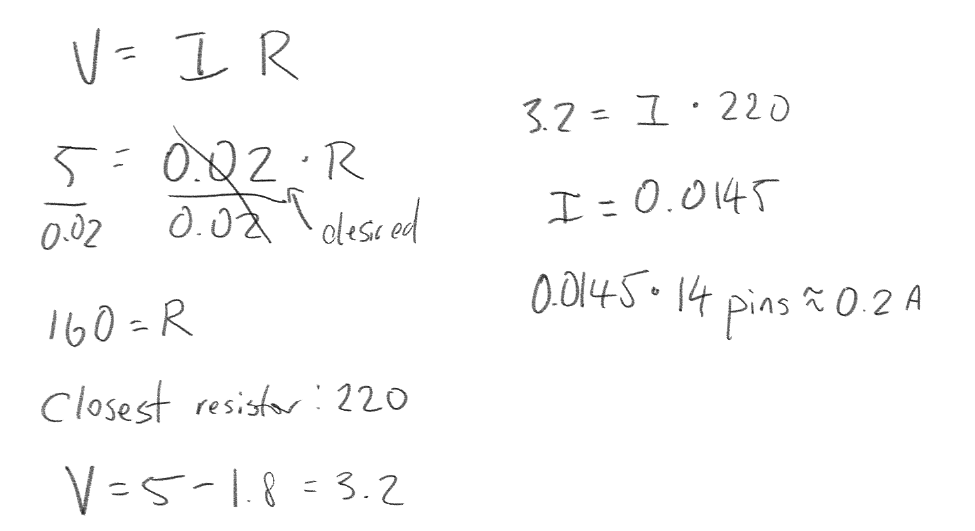 V = I R
5 = 0.02 · R
0.02 0.02 desired
160 = R
Closest resistor: 220
V = 5 - 1.8 = 3.2
3.2 = I · 220
I = 0.0145
0.0145 · 14 pins ≈ 0.2 A